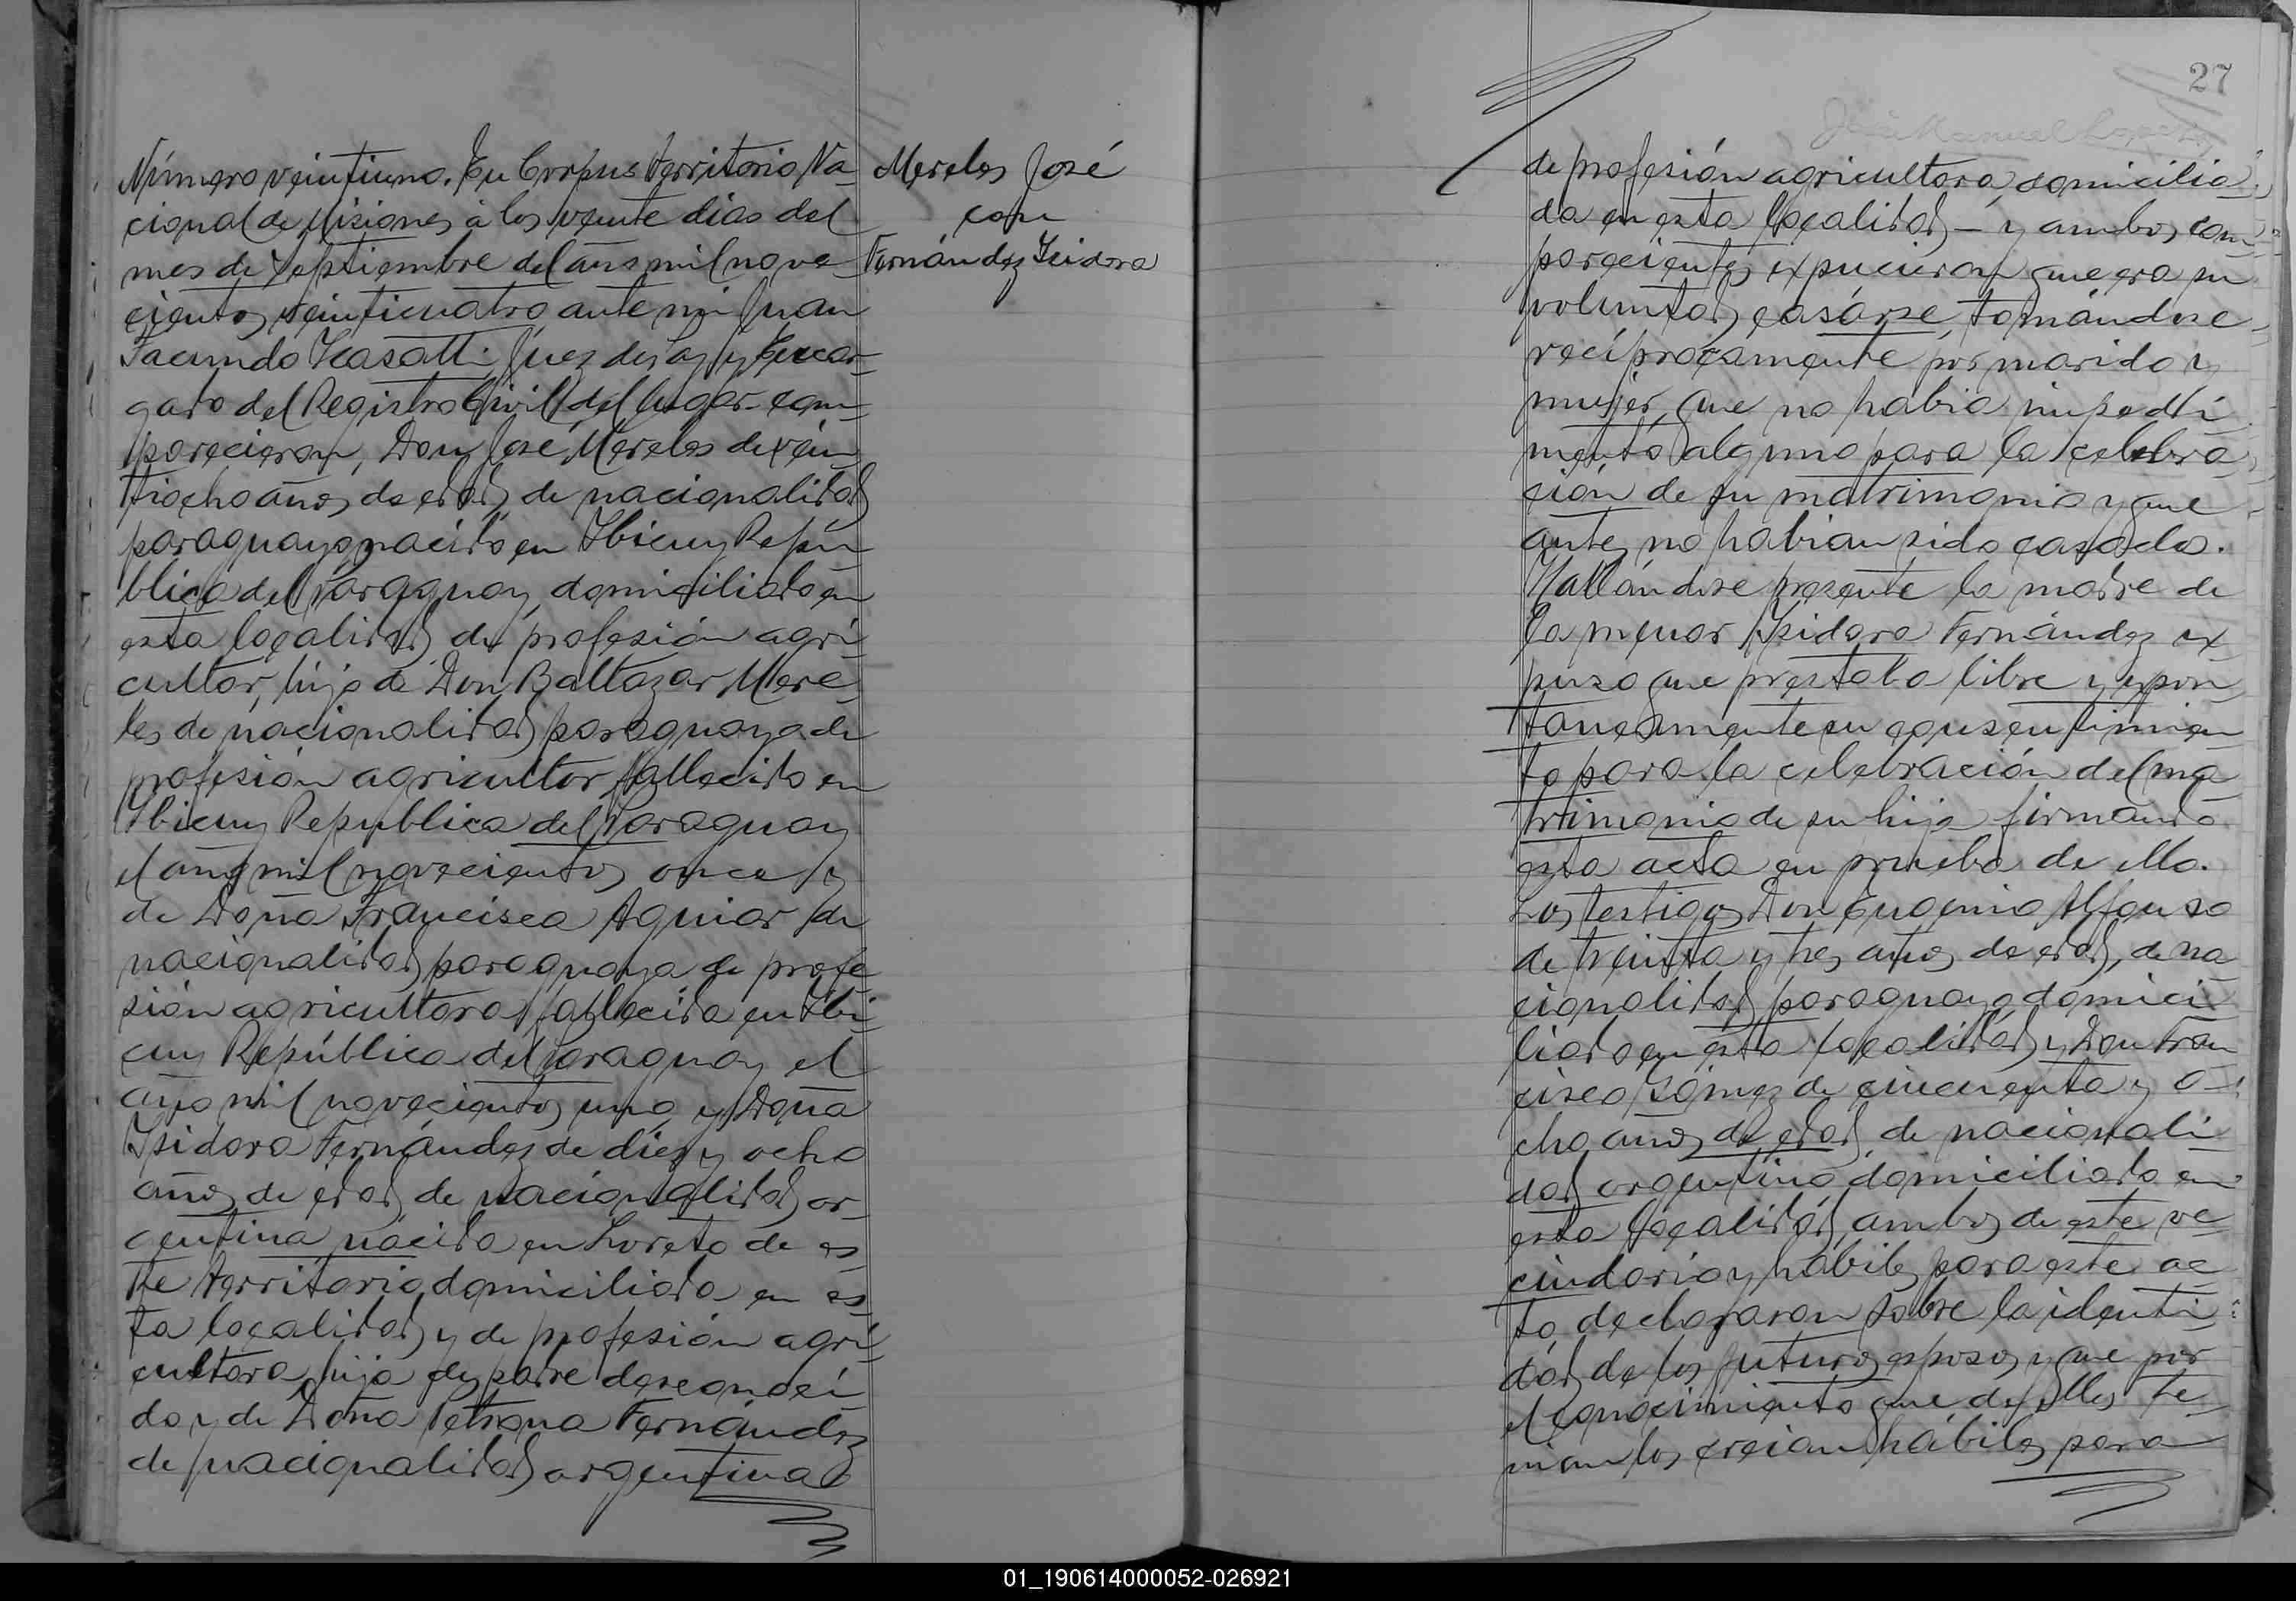 Número veintiuno. En Corpus Territorio Na-
cional de Misiones à los veinte dias del
mes de Septiembre del año mil nove-
cientos veinticuatro ante mi Juan
Facundo Juez de Paz y Encar-
gado del Registro Civil del lugar com-
parecieron, Don José Mereles de vein-
tiocho años de edad, de nacionalidad
paraguayo nacido en Ibicuy Repú-
blica del Paraguay, domiciliado en
esta localidad, de profesión agri-
cultor, hijo de Don Baltazar Mere-
les de nacionalidad paraguaya de
profesión agricultor, fallecido en
Ibicuy Republica del Paraguay
el año mil novecientos once y
de Doña Francisca Aguiar de
nacionalidad paraguaya de profe-
sión agricultora fallecida en Ibi-
cuy República del Paraguay el
año mil novecientos uno y Doña
Isidora Fernández de diez y ocho
años de edad de nacionalidad ar-
gentina nacida en Loreto de es-
te territorio domiciliada en es-
ta localidad y de profesión agri-
cultora hija de padre desconoci-
do y de Doña Petrona Fernández
de nacionalidad argentina
Mereles José
con
Fernández Isidora
27
José Manuel Lopez
de profesión agricultora domicilia-
da en esta localidad – y ambos com-
parecientes expucieron que era su
voluntad casarse, tomándose
recíprocamente por marido y
mujer, que no habia impedi-
mento alguno para la celebra-
ción de su matrimonio y que
antes no habian sido casados.
Hallándose presente la madre de
la menor Isidora Fernández ex-
puso que prestaba libre y espon-
taneamente su consentimien-
to para la celebración del ma-
trimonio de su hija firmando
esta acta en prueba de ello.
Los testigos Don Eugenio Alfonso
de treinta y tres años de edad, de na-
cionalidad paraguayo domici-
liado en esta localidad y Don Fran-
cisco Gómez de cincuenta y o-
cho años de edad de nacionali-
dad argentino domiciliado en
esta localidad, ambos de este ve-
cindario y hábiles para este ac-
to declararon sobre la identi-
dad de los futuros esposos y que por
el conocimiento que de ellos te-
nian los creian hábiles para
01_190614000052-026921